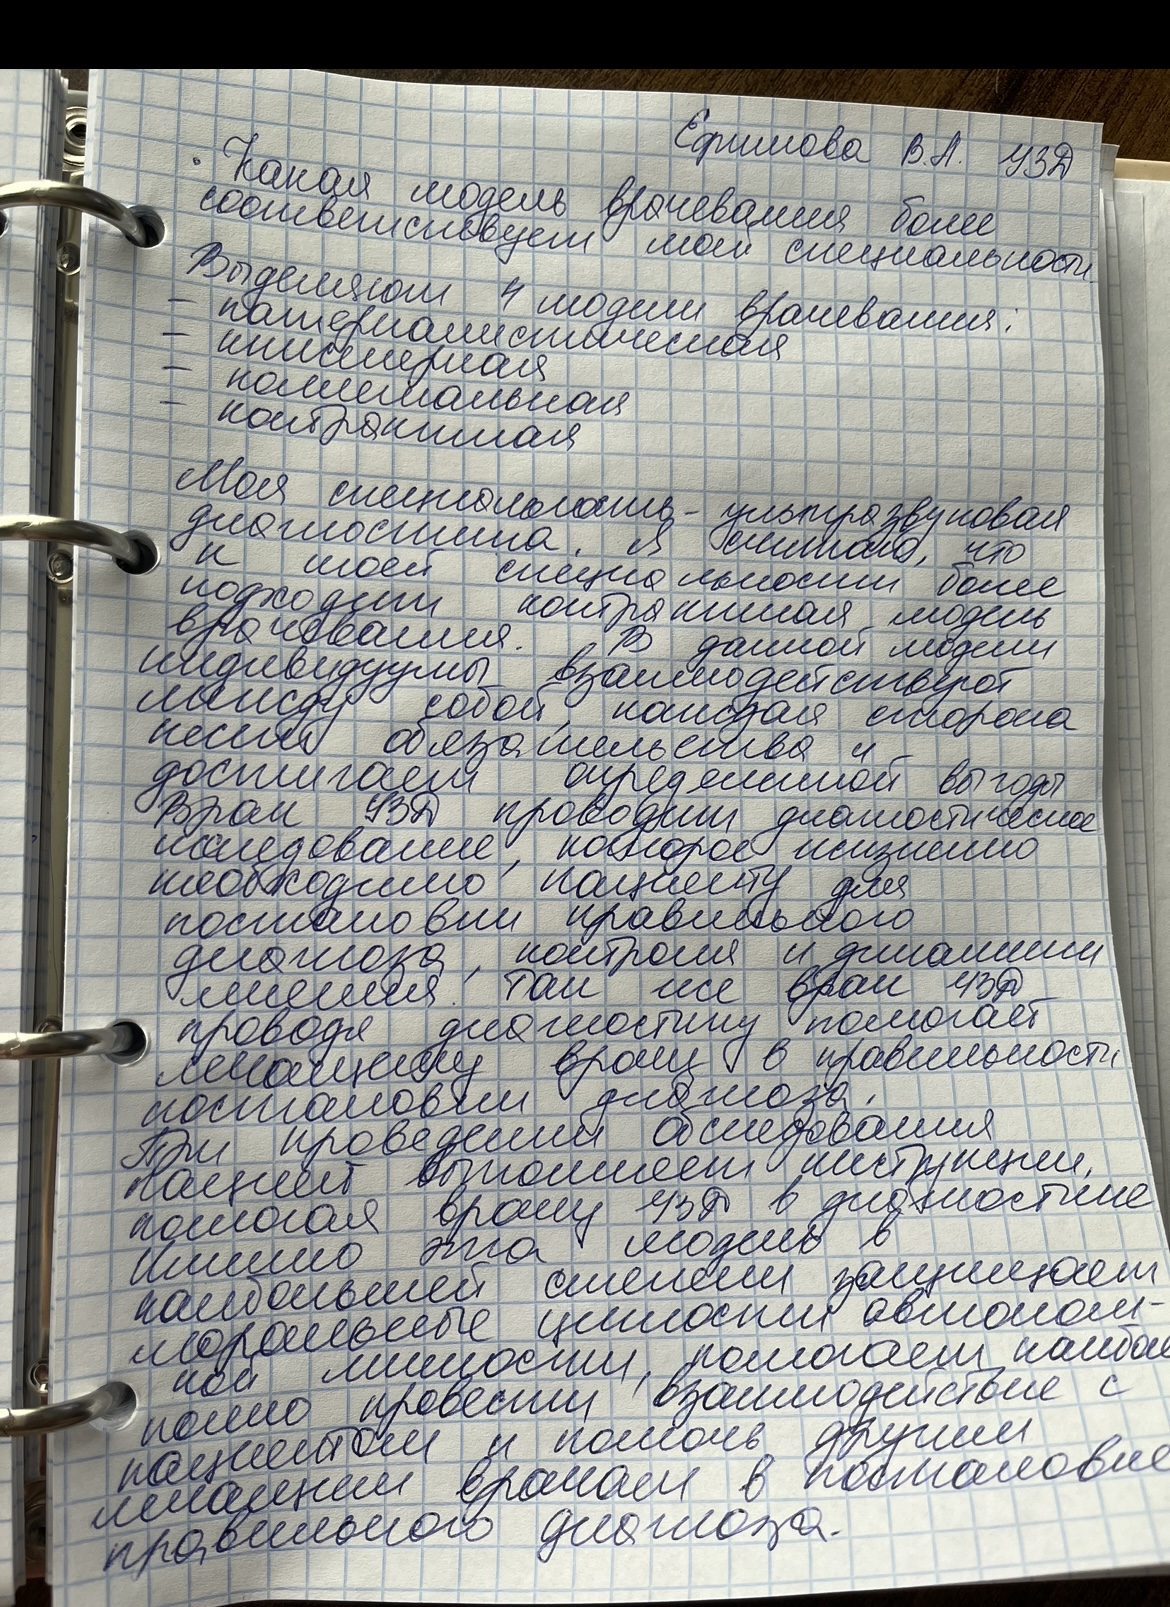 Ефимова В.А. УЗД
· Какая модель врачевания более
соответствует моей специальности
Выделяют 4 модели врачевания:
- патерналистическая
- инженерная
- коллегиальная
- контрактная
Моя специальность - ультразвуковая
диагностика. Я считаю, что
к моей специальности более
подходит контрактная модель
врачевания. В данной модели
индивидуумы взаимодействуют
между собой, каждая сторона
несет обязательства и
достигает определенной выгоды
Врач УЗД проводит диагностическое
исследование, которое жизненно
необходимо пациенту для
постановки правильного
диагноза, контроля и динамики
лечения. Так же врач УЗД
проводя диагностику помогает
лечащему врачу в правильности
постановки диагноза.
При проведении обследования
пациент выполняет инструкции,
помогая врачу УЗД в диагностике
Именно эта модель в
наибольшей степени защищает
моральные ценности автоном-
ной личности, помогает наибол
полно провести взаимодействие с
пациентом и помочь другим
лечащим врачам в постановке
правильного диагноза.